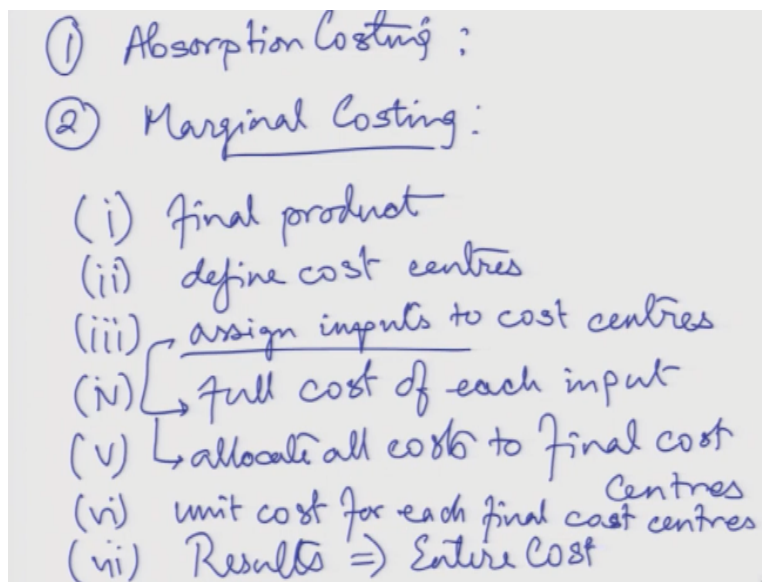 ① Absorption Costing :
② Marginal Costing :
(i) final product
(ii) define cost centres
(iii) assign inputs to cost centres
(iv) full cost of each input
(v) allocate all costs to final cost
Centres
(vi) unit cost for each final cost centres
(vii) Results => Entire Cost